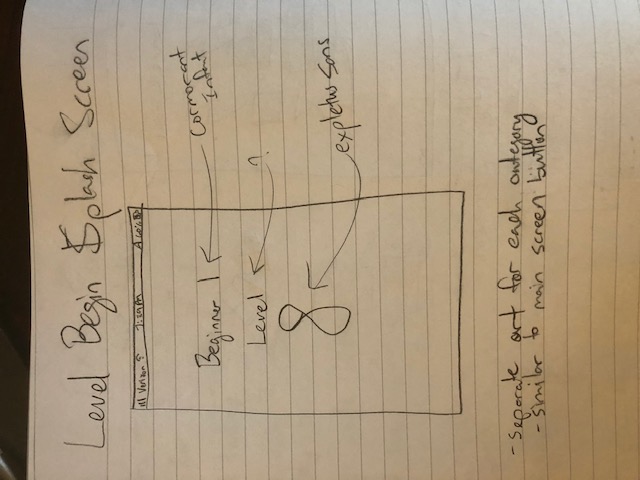 Level Begin Splash Screen
Verizon 7:29 PM 60%
Beginner 1
Cormorant
Infant
Level
?
8
expletus sans
- separate art for each category
- similar to main screen button